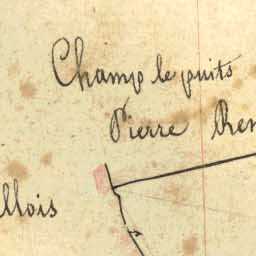 Champ le puits
Pierre Ren
llois